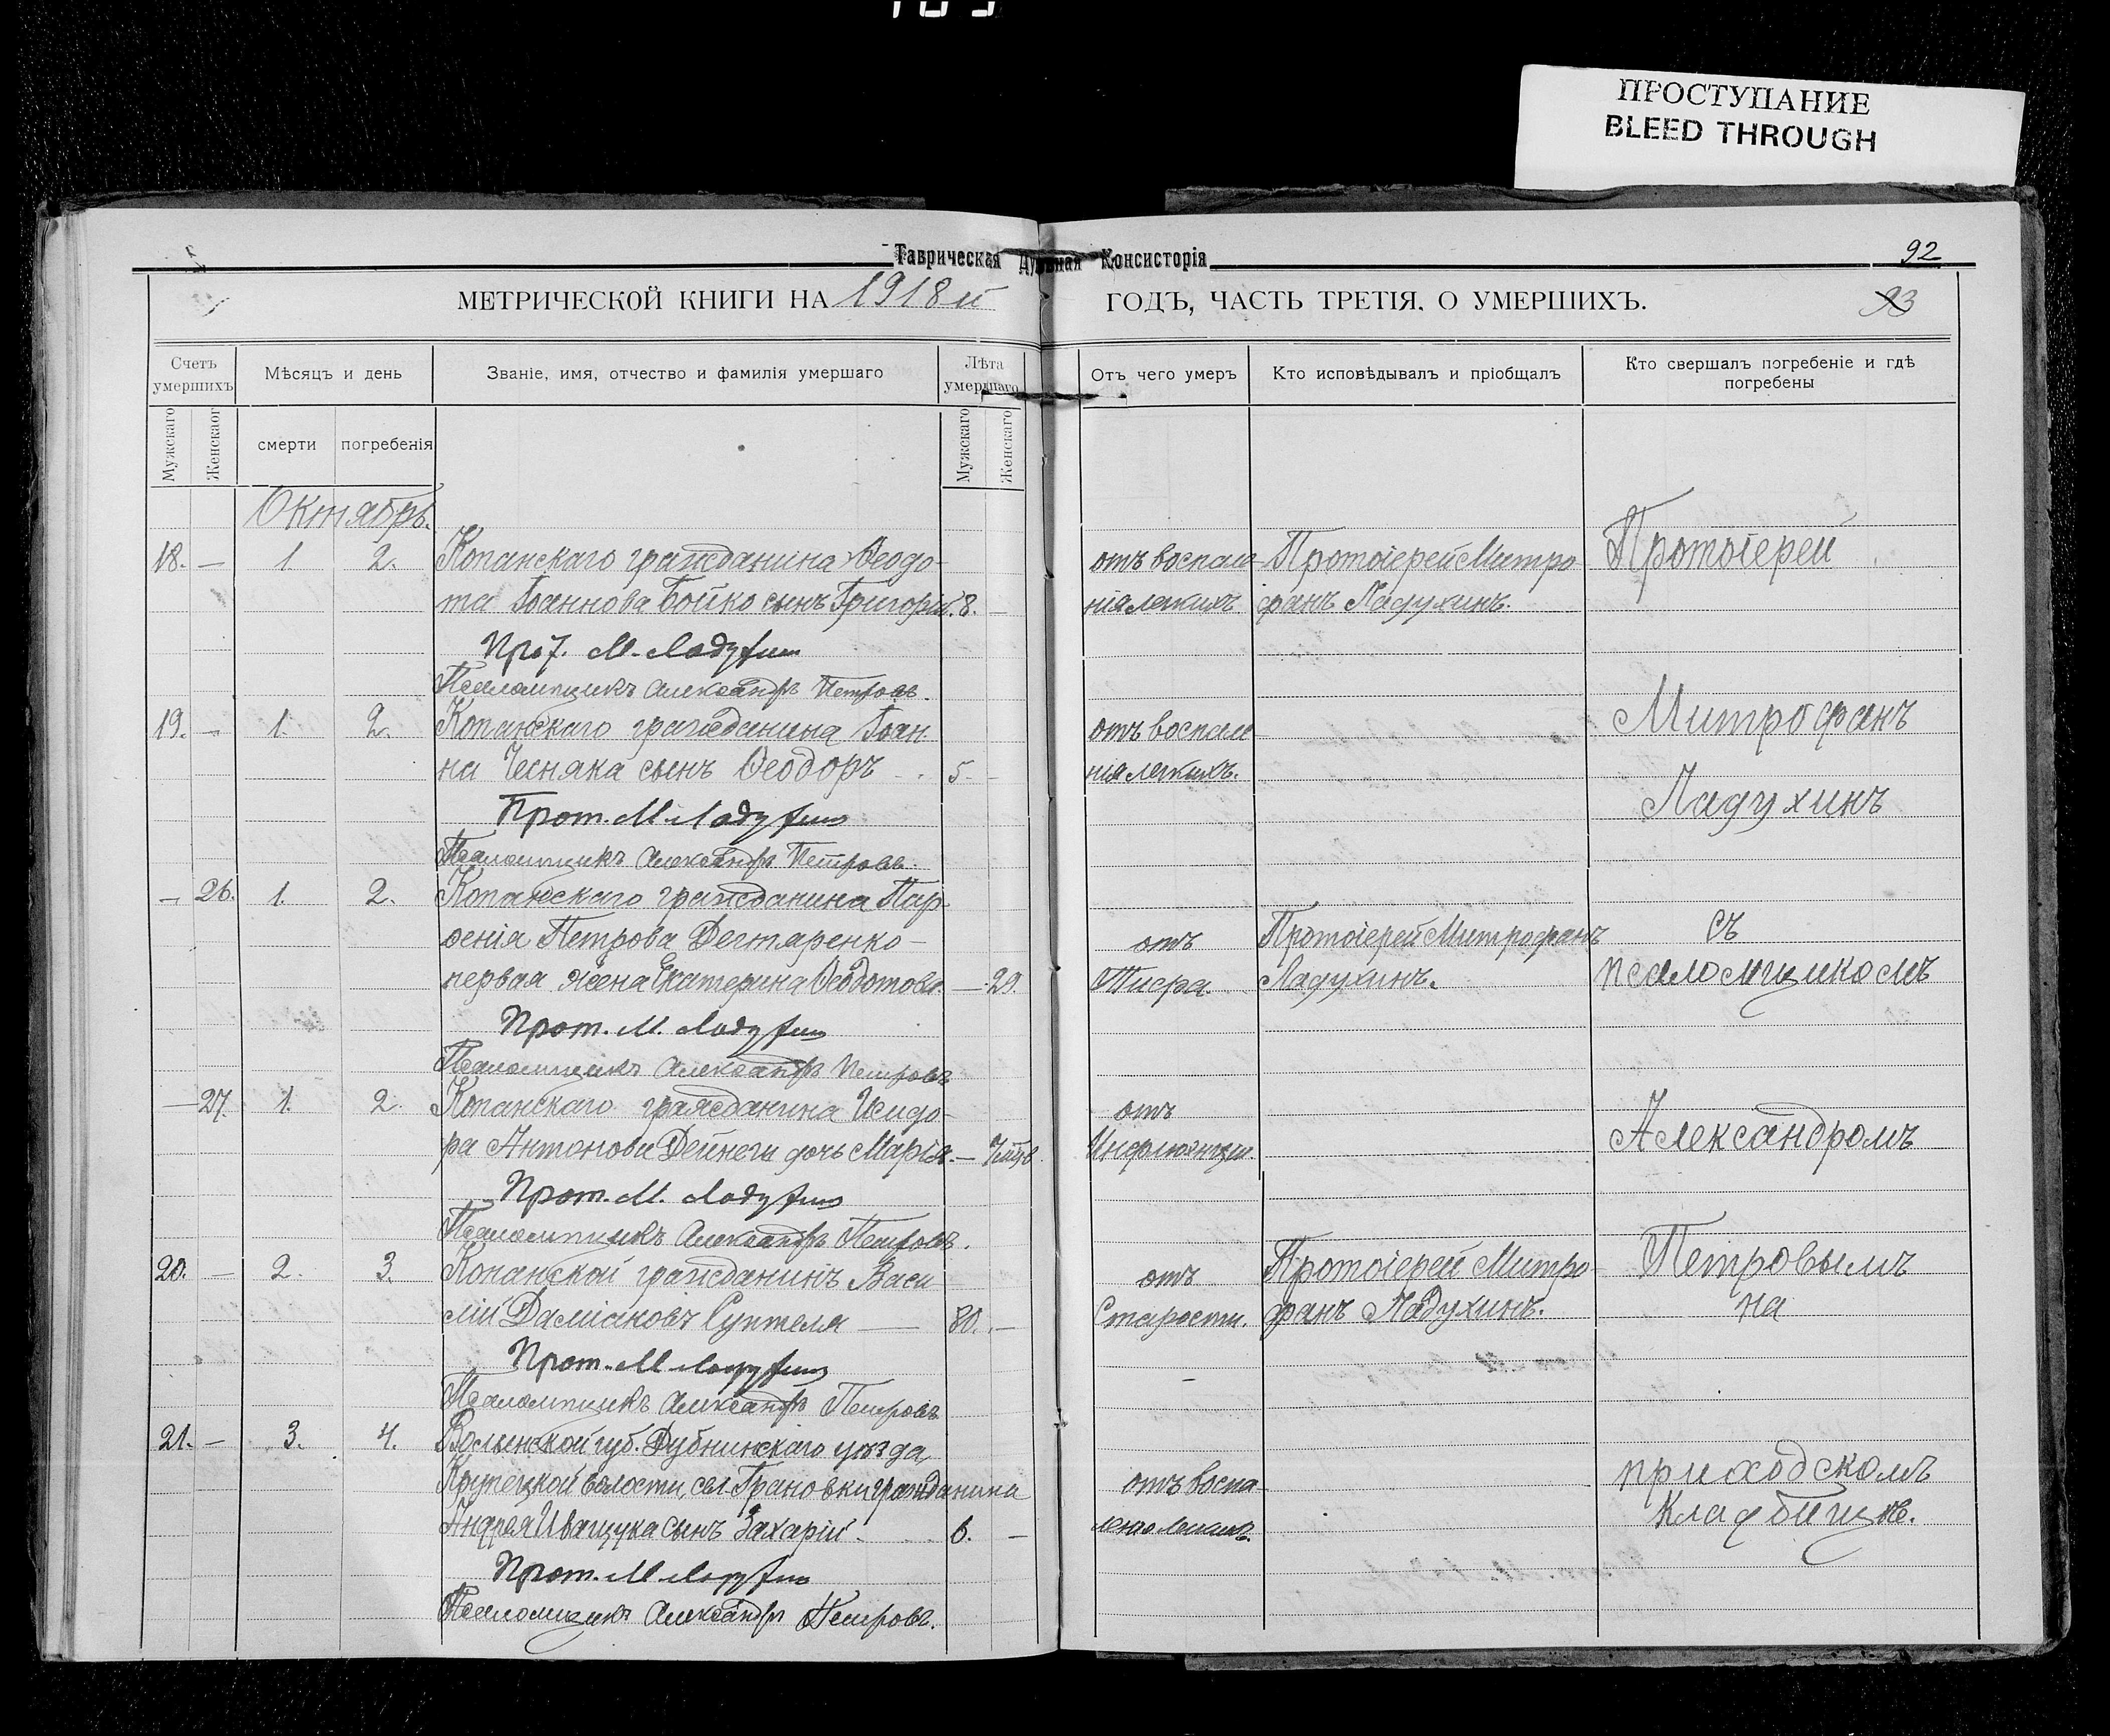 ПРОСТУПАНИЕ
BLEED THROUGH
Таврическая Духовная Консисторія
92
МЕТРИЧЕСКОЙ КНИГИ НА 1918й ГОДЪ, ЧАСТЬ ТРЕТІЯ, О УМЕРШИХЪ.
93
Счетъ умершихъ
Мѣсяцъ и день
Званіе, имя, отчество и фамилія умершаго
Лѣта умершаго
Отъ чего умеръ
Кто исповѣдывалъ и пріобщалъ
Кто свершалъ погребеніе и гдѣ погребены
Мужскаго
Женскаог
смерти
погребенія
Мужскаго
Женскаго
Октябрь.
18. — 1 2. Копанскаго гражданина Ѳеодо- отъ воспале- Протоіерей Митро Протоіерей
та Іоаннова Бойко сынъ Григорій. 8. — нія легкихъ фанъ Ладухинъ.
Прот. М. Ладухин
Псаломщикъ Александръ Петровъ.
Митрофанъ
19. — 1. 2. Копанскаго гражданина Іоан отъ воспале
на Чесняка сынъ Ѳеодоръ 5. — нія легкихъ.
Ладухинъ
Прот. М. Ладухин
Псаломщикъ Александръ Петровъ.
— 26. 1. 2. Копанскаго гражданина Пар-
ѳенія Петрова Дегтяренко — отъ Протоіерей Митрофанъ съ
первая жена Екатерина Ѳеодотова. — 29. Тифа. Ладухинъ. псаломщикомъ
Прот. М. Ладухин
Псаломщикъ Александръ Петровъ
— 27. 1. 2. Копанскаго гражданина Исидо- отъ
ра Антонова Дейнеги дочь Марія. — 7 мѣс. Инфлюэнціи. Александромъ
Прот. М. Ладухин
Псаломщикъ Александръ Петровъ.
20. — 2. 3. Копанской гражданинъ Васи отъ Протоіерей Митро- Петровымъ
лій Даміановъ Суптеля — 80. — Старости. фанъ Ладухинъ. на
Прот. М Ладухин
Псаломщикъ Александръ Петровъ
21. — 3. 4. Волынской губ. Дубнинскаго уѣзда,
Крупецкой волости, сел. Грановки гражданина отъ воспа- приходскомъ
Андрея Иващука сынъ Захарій. 6. — ленія легкихъ. кладбищѣ.
Прот. М Ладухин
Псаломщикъ Александръ Петровъ.